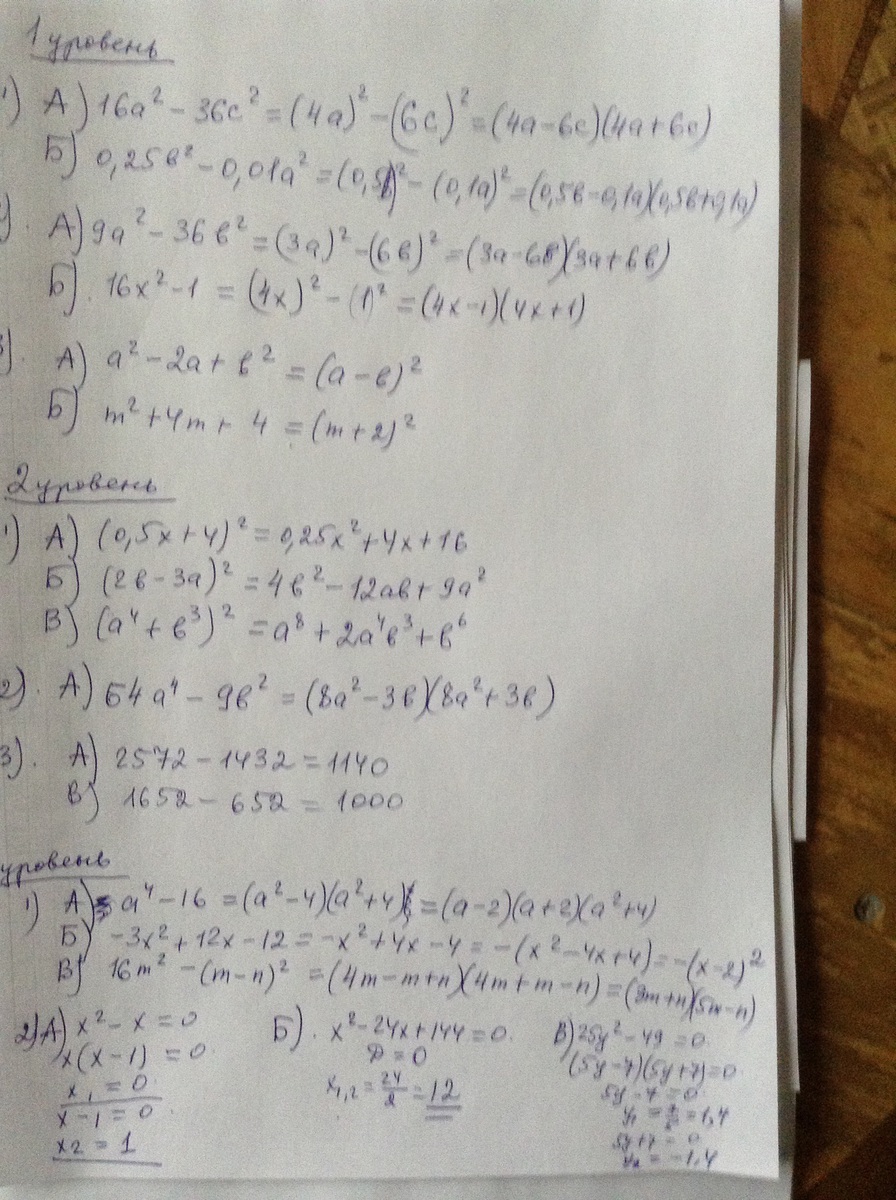 1 уровень
1) А) 16a² - 36c² = (4a)² - (6c)² = (4a-6c)(4a+6c)
Б) 0,25в² - 0,01a² = (0,5в)² - (0,1a)² = (0,5в-0,1a)(0,5в+0,1a)
). А) 9a² - 36в² = (3a)² - (6в)² = (3a-6в)(3a+6в)
Б). 16x² - 1 = (4x)² - (1)² = (4x-1)(4x+1)
). А) a² - 2a + в² = (a-в)²
Б) m² + 4m + 4 = (m+2)²
2 уровень
1) А) (0,5x+4)² = 0,25x² + 4x + 16
Б) (2в-3a)² = 4в² - 12aв + 9a²
В) (a⁴ + в³)² = a⁸ + 2a⁴в³ + в⁶
2). А) 64a⁴ - 9в² = (8a² - 3в)(8a² + 3в)
3). А) 2572 - 1432 = 1140
В) 1652 - 652 = 1000
уровень
1) А) a⁴ - 16 = (a²-4)(a²+4) = (a-2)(a+2)(a²+4)
Б) -3x² + 12x - 12 = -x² + 4x - 4 = -(x² - 4x + 4) = -(x-2)²
В) 16m² - (m-n)² = (4m-m+n)(4m+m-n) = (3m+n)(5m-n)
2) А) x² - x = 0
x(x-1) = 0
x₁ = 0
x - 1 = 0
x2 = 1
Б). x² - 24x + 144 = 0
D = 0
x₁,₂ = 24/2 = 12
В) 25y² - 49 = 0
(5y-7)(5y+7) = 0
5y - 7 = 0
y₁ = 7/5 = 1,4
5y + 7 = 0
y₂ = -1,4